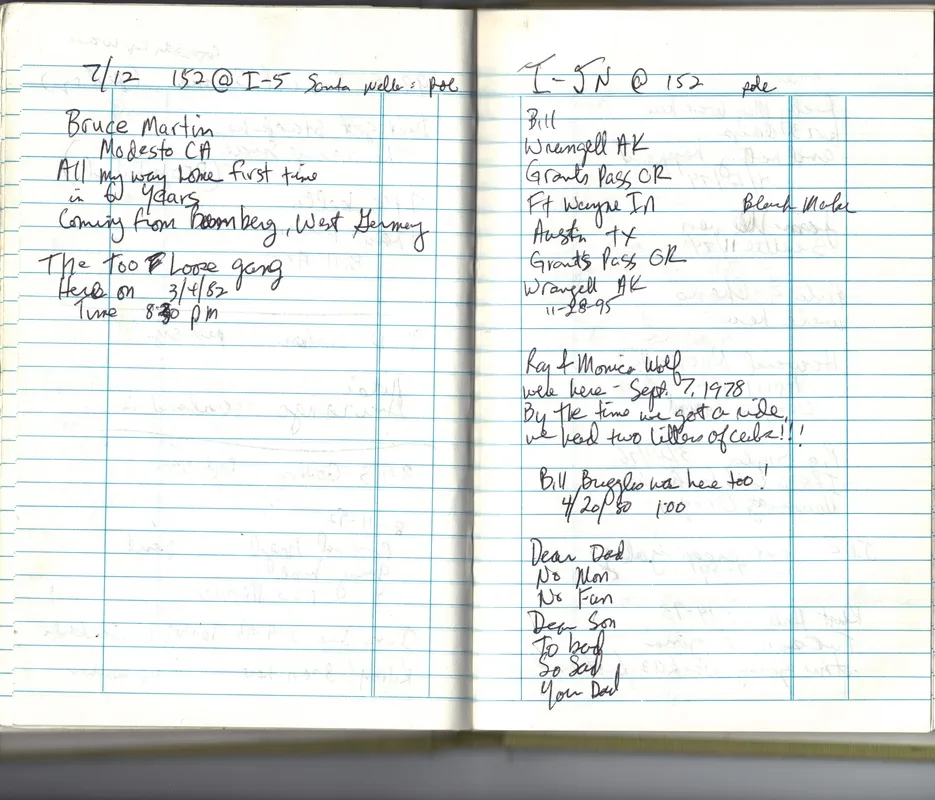 7/12 152 @ I-5 Santa Nella: pole
Bruce Martin
Modesto CA
All my way home first time
in 6 years
Coming from Bomberg, West Germey
The Too Looze gang
Here on 3/4/82
Time 8:30 pm
I-5N @ 152 pole
Bill
Wrangell AK
Grants Pass OR
Ft Wayne In Black Marker
Austin TX
Grants Pass OR
Wrangell AK
11-28-95
Ray & Monica Wolf
were here - Sept. 7, 1978
By the time we got a ride,
we had two litters of cubs!!!
Bill Buggles was here too!
4/20/80 1:00
Dear Dad
No Mon
No Fun
Dear Son
To bad
So Sad
Your Dad